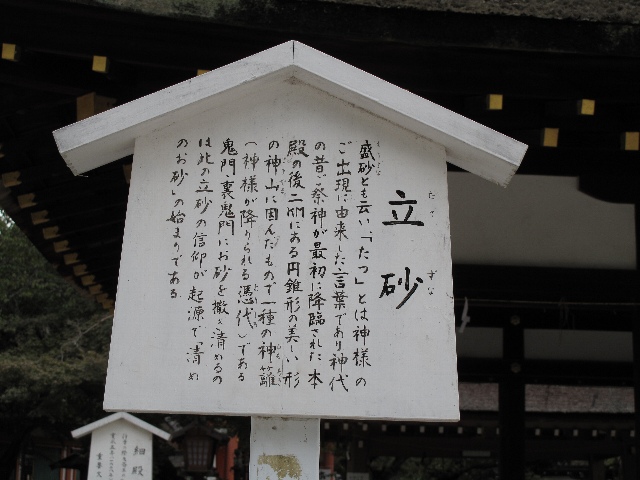 立砂
たてずな
盛砂とも云い、「たつ」とは神様の
ご出現に由来した言葉であり神代
の昔ご祭神が最初に降臨された本
殿の後二KMにある円錐形の美しい形
の神山に因んだもので一種の神籬
(神様が降りられる憑代)である
鬼門、裏鬼門にお砂を撒き清めるの
は此の立砂の信仰が起源で「清め
のお砂」の始まりである
細殿